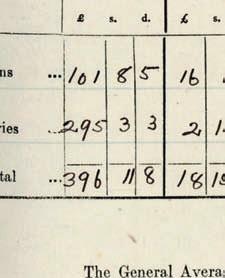 £ s. d. £ s.
ns ... 101 8 5 16
ries ... 295 3 3 2
tal ... 396 11 8 18
The General Avera